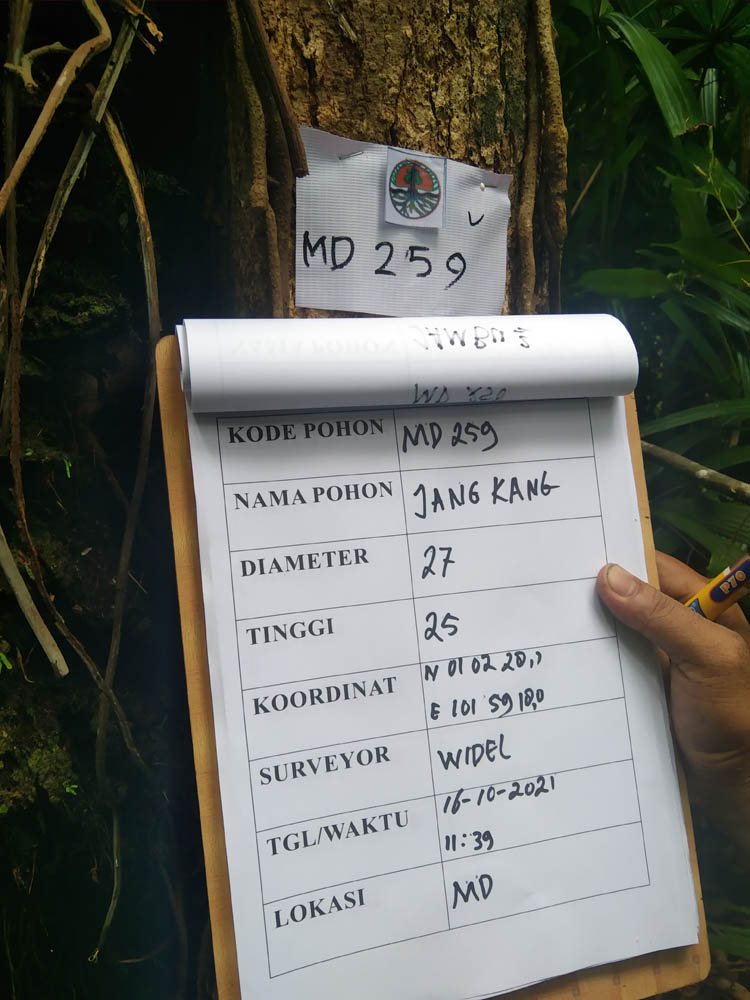 MD 259
KODE POHON MD 259
NAMA POHON JANG KANG
DIAMETER 27
TINGGI 25
KOORDINAT N 01 02 20,1
E 101 59 18,0
SURVEYOR WIDEL
TGL/WAKTU 16-10-2021
11:39
LOKASI MD
P20